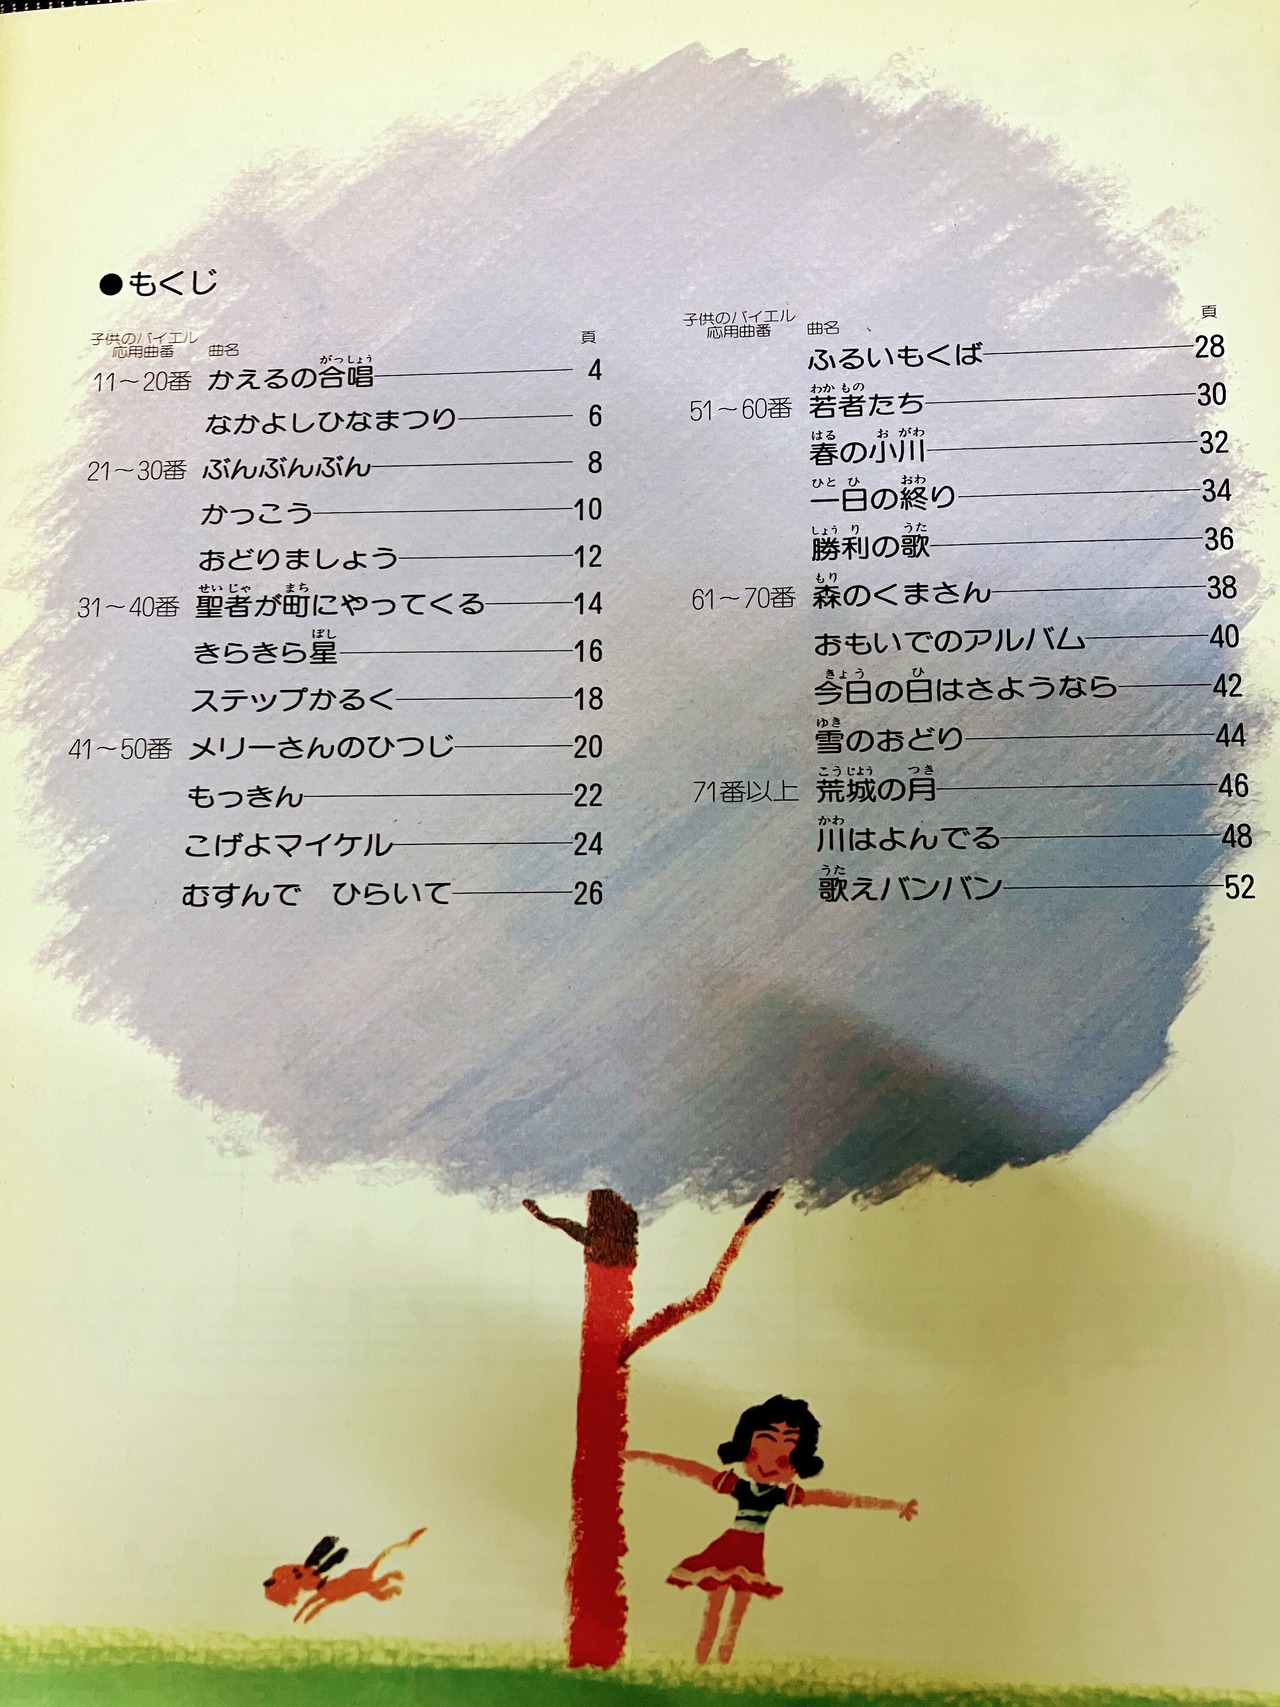 ●もくじ
子供のバイエル
応用曲番 曲名 頁
がっしょう
11～20番 かえるの合唱 4
なかよしひなまつり 6
21～30番 ぶんぶんぶん 8
かっこう 10
おどりましょう 12
せいじゃ まち
31～40番 聖者が町にやってくる 14
ぼし
きらきら星 16
ステップかるく 18
41～50番 メリーさんのひつじ 20
もっきん 22
こげよマイケル 24
むすんで　ひらいて 26
子供のバイエル
応用曲番 曲名 頁
ふるいもくば 28
わか もの
51～60番 若者たち 30
はる お がわ
春の小川 32
ひと ひ おわ
一日の終り 34
しょう り うた
勝利の歌 36
もり
61～70番 森のくまさん 38
おもいでのアルバム 40
きょう ひ
今日の日はさようなら 42
ゆき
雪のおどり 44
こうじょう つき
71番以上 荒城の月 46
かわ
川はよんでる 48
うた
歌えバンバン 52